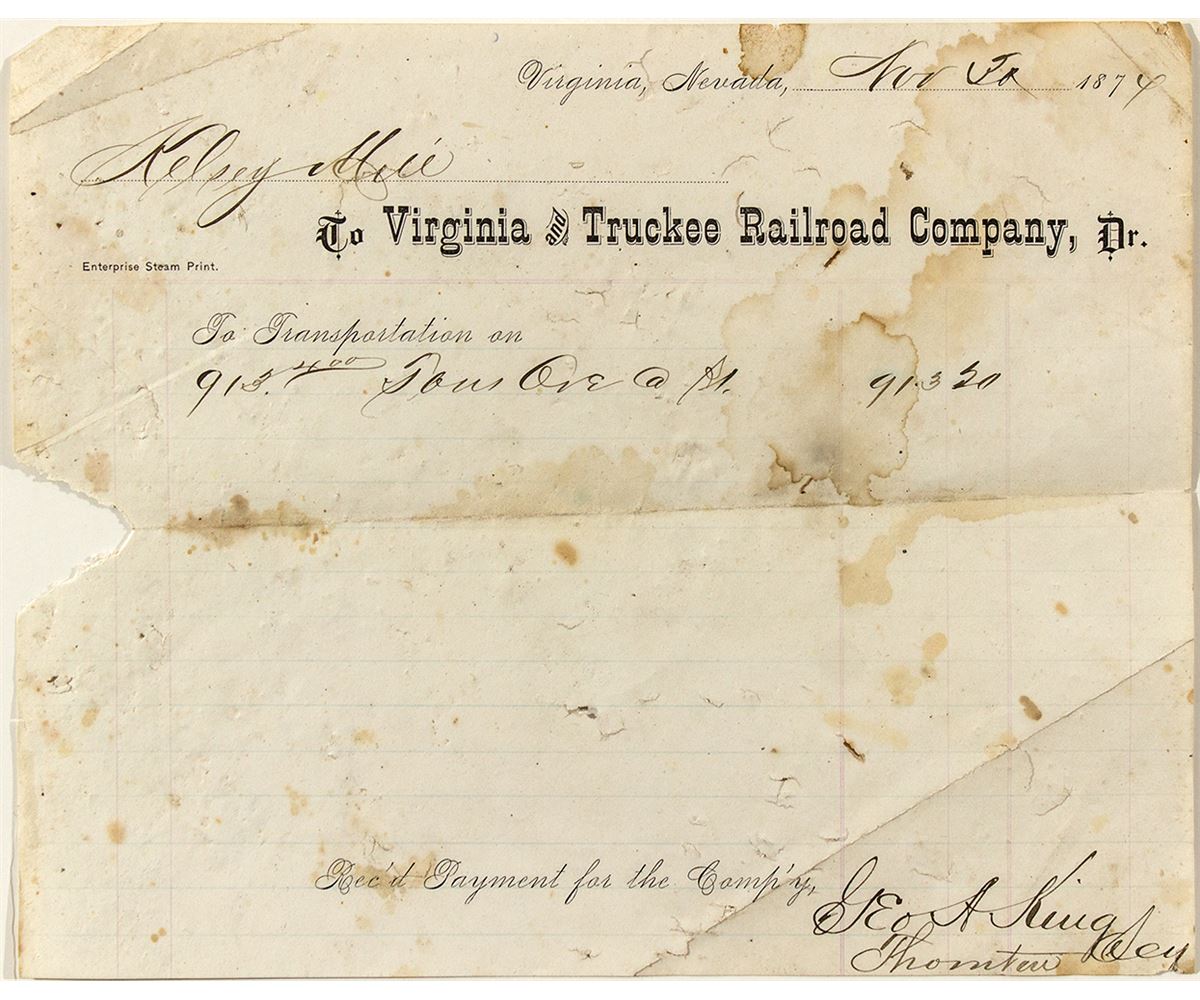 Virginia, Nevada, Nov 30 1874
Kelsey Mill
To Virginia and Truckee Railroad Company, Dr.
Enterprise Steam Print.
To Transportation on
913. 400 Tons Ore @ $1. 913 20
Rec'd Payment for the Comp'y,
Geo A King
Thornton